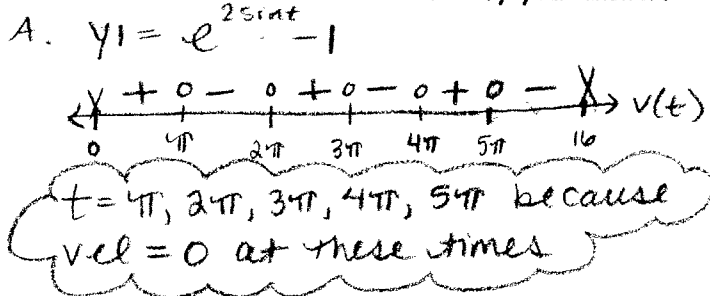 A. y1 = e^{2sint} - 1
X + 0 - 0 + 0 - 0 + 0 - X v(t)
0 π 2π 3π 4π 5π 16
t = π, 2π, 3π, 4π, 5π because
vel = 0 at these times